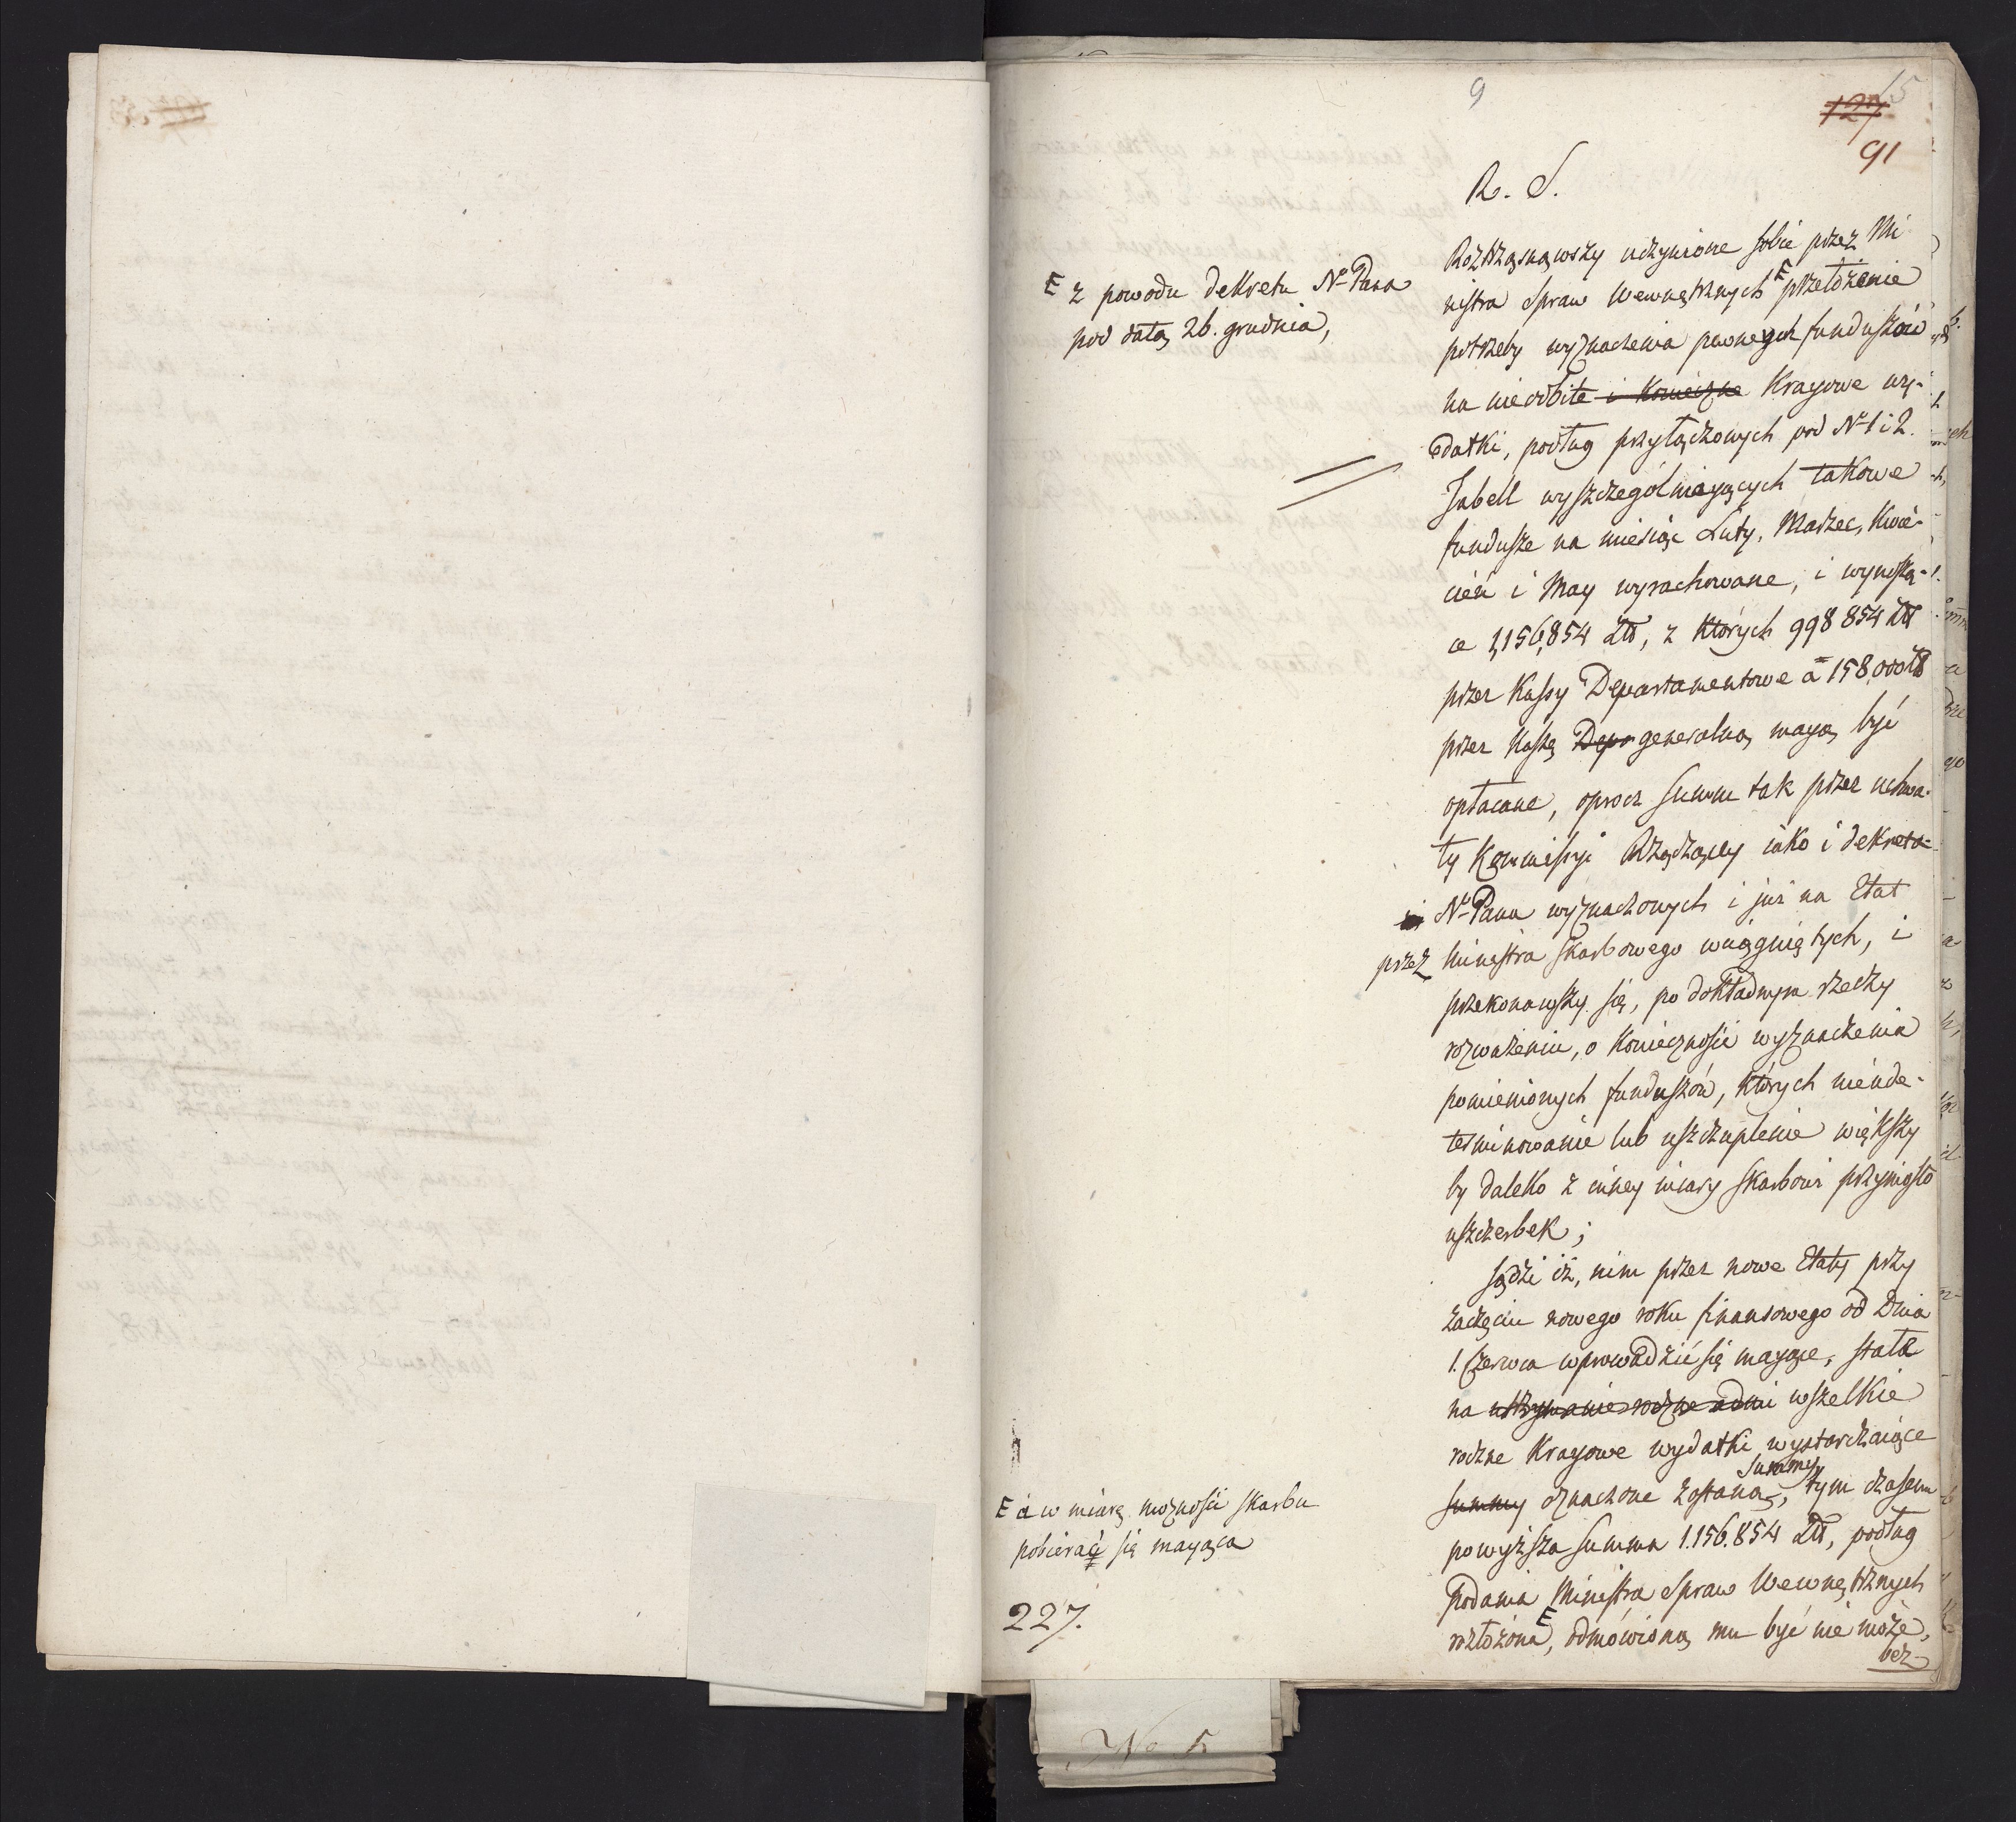 9
15
127
91
R. S.
E z powodu dekretu No Pana
pod datą 26. grudnia,
Roztrząsnąwszy uczynione sobie przez Mi
nistra Spraw Wewnętrznych E przełożenie
potrzeby wyznaczenia pewnych funduszów
na nieodbite i konieczne Kraiowe wy-
datki, podług przyłączonych pod No 1 i 2.
Tabell wyszczególniaiących takowe
fundusze na miesiąc Luty, Marzec, Kwie-
cień i May wyrachowane, i wynoszą-
ce 1,156,854 Zło, z których 998 854 Zło
przez Kassy Departamentowe a 158,000 Zł
przez Kassę Depa generalną maią być
opłacane, oprócz Summ tak przez uchwa-
ły Kommissyi Rządzącey iako i dekreta-
i No Pana wyznaczonych i już na Etat
przez Ministra Skarbowego wciągniętych, i
przekonawszy się, po dokładnym rzeczy
rozważeniu, o konieczności wyznaczenia
pomienionych funduszów, których nieude-
terminowanie lub uszczuplenie większy
by daleko z inney miary Skarbowi przyniosło
uszczerbek;
Sądzi iż, nim przez nowe Etaty przy
zaczęciu nowego roku finansowego od Dnia
1. Czerwca wprowadzić się maiące, stałe
na utrzymanie roczne admi wszelkie
roczne Kraiowe wydatki wystarczaiące
Summy
summy oznaczone zostaną, tym czasem
powyższa Summa 1.156.854 Zło, podług
podania Ministra Spraw Wewnętrznych
rozłożona E, odmówioną mu być nie może,
bez-
E a w miarę możności Skarbu
pobierać się maiąca
227.
No 5